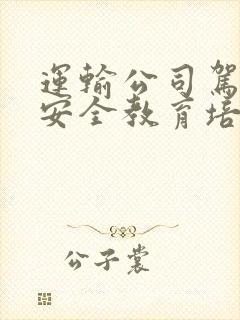 運輸公司駕
安全教育培
公子裳